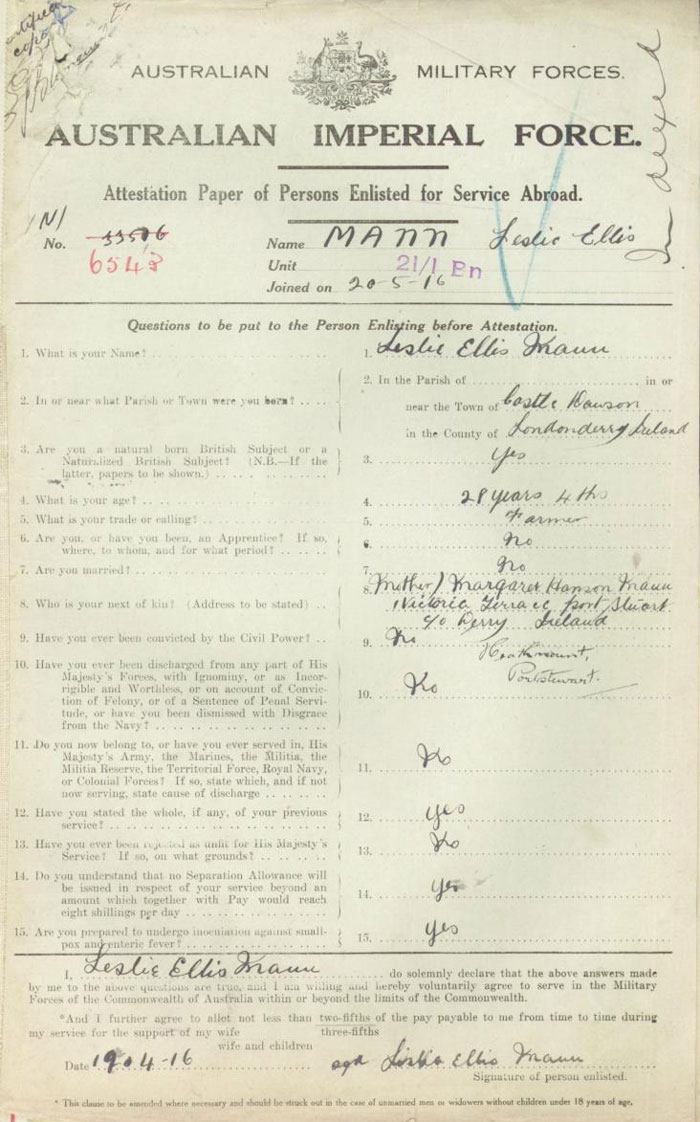 AUSTRALIAN MILITARY FORCES.
AUSTRALIAN IMPERIAL FORCE.
Attestation Paper of Persons Enlisted for Service Abroad.
Indexed
N1
No. 33506 Name MANN Leslie Ellis
6543 Unit 21/1 Bn
Joined on 20-5-16
Questions to be put to the Person Enlisting before Attestation.
1. What is your Name? 1. Leslie Ellis Mann
2. In or near what Parish or Town were you born? 2. In the Parish of in or
near the Town of Castle Dawson
in the County of Londonderry Ireland
3. Are you a natural born British Subject or a
Naturalized British Subject? (N.B.—If the
latter, papers to be shown.) 3. Yes
4. What is your age? 4. 28 years 4 ths
5. What is your trade or calling? 5. Farmer
6. Are you, or have you been, an Apprentice? If so,
where, to whom, and for what period? 6. No
7. Are you married? 7. No
8. Who is your next of kin? (Address to be stated) 8. (Mother) Margaret Hanson Mann
1 Victoria Terrace port Stuart
c/o Derry Ireland
9. Have you ever been convicted by the Civil Power? 9. No
Portstewart.
10. Have you ever been discharged from any part of His
Majesty's Forces, with Ignominy, or as Incor-
rigible and Worthless, or on account of Convic-
tion of Felony, or of a Sentence of Penal Servi-
tude, or have you been dismissed with Disgrace
from the Navy? 10. No
11. Do you now belong to, or have you ever served in, His
Majesty's Army, the Marines, the Militia, the
Militia Reserve, the Territorial Force, Royal Navy,
or Colonial Forces? If so, state which, and if not
now serving, state cause of discharge 11. No
12. Have you stated the whole, if any, of your previous
service? 12. Yes
13. Have you ever been rejected as unfit for His Majesty's
Service? If so, on what grounds? 13. No
14. Do you understand that no Separation Allowance will
be issued in respect of your service beyond an
amount which together with Pay would reach
eight shillings per day 14. Yes
15. Are you prepared to undergo inoculation against small-
pox and enteric fever? 15. Yes
I, Leslie Ellis Mann do solemnly declare that the above answers made
by me to the above questions are true, and I am willing and hereby voluntarily agree to serve in the Military
Forces of the Commonwealth of Australia within or beyond the limits of the Commonwealth.
*And I further agree to allot not less than two-fifths of the pay payable to me from time to time during
my service for the support of my wife three-fifths
wife and children
Date 19-4-16 sgd Leslie Ellis Mann
Signature of person enlisted.
* This clause to be amended where necessary and should be struck out in the case of unmarried men or widowers without children under 18 years of age.